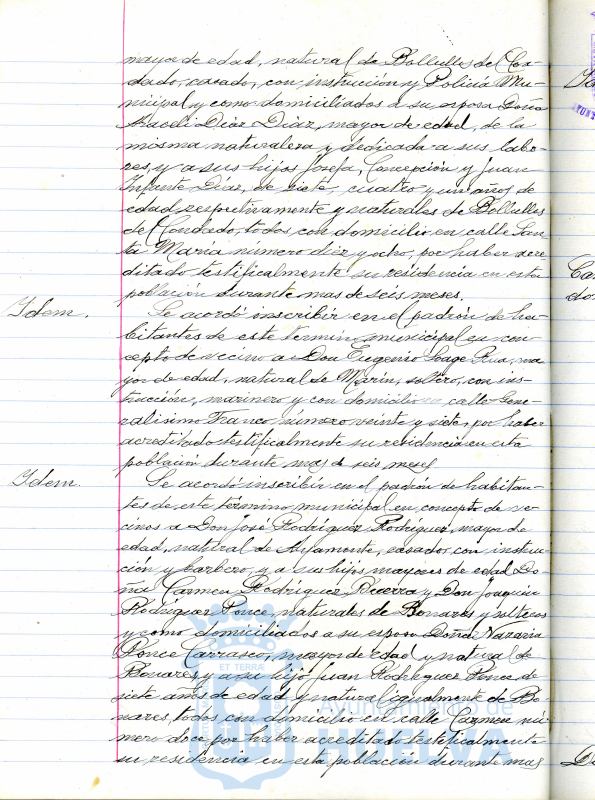 mayor de edad, natural de Bollullos del Con-
dado, casado, con instrucción y Policía Mu-
nicipal y como domiciliados a su esposa Doña
Araceli Díaz Díaz, mayor de edad, de la
misma naturaleza y dedicada a sus labo-
res, y a sus hijos Josefa, Concepción y Juan
Infante Díaz, de siete, cuatro y un años de
edad, respectivamente y naturales de Bollullos
del Condado, todos con domicilio en calle San-
ta María número diez y ocho, por haber acre-
ditado testificalmente su residencia en esta
población durante mas de seis meses.
Idem.
Se acordó inscribir en el padrón de ha-
bitantes de este término municipal en con-
cepto de vecino a Don Eugenio Loage Rua, ma-
yor de edad, natural de Marín, soltero, con ins-
trucción, marinero y con domicilio en calle Gene-
ralísimo Franco número veinte y siete, por haber
acreditado testificalmente su residencia en esta
población durante mas de seis meses
Idem.
Se acordó inscribir en el padrón de habitan-
tes de este término municipal en concepto de ve-
cinos a Don José Rodríguez Rodríguez, mayor de
edad, natural de Ayamonte, casado, con instruc-
ción y barbero, y a sus hijos mayores de edad Do-
ña Carmen Rodríguez Becerra y Don Joaquín
Rodríguez Ponce, naturales de Bonares y solteros
y como domiciliados a su esposa Doña Nazaria
Ponce Carrasco, mayor de edad y natural de
Bonares y a su hijo Juan Rodríguez Ponce de
siete años de edad y natural igualmente de Bo-
nares, todos con domicilio en calle Carmen nú-
mero doce por haber acreditado testificalmente
su residencia en esta población durante mas
ET TERRA
Ayuntamiento de
HUELVA